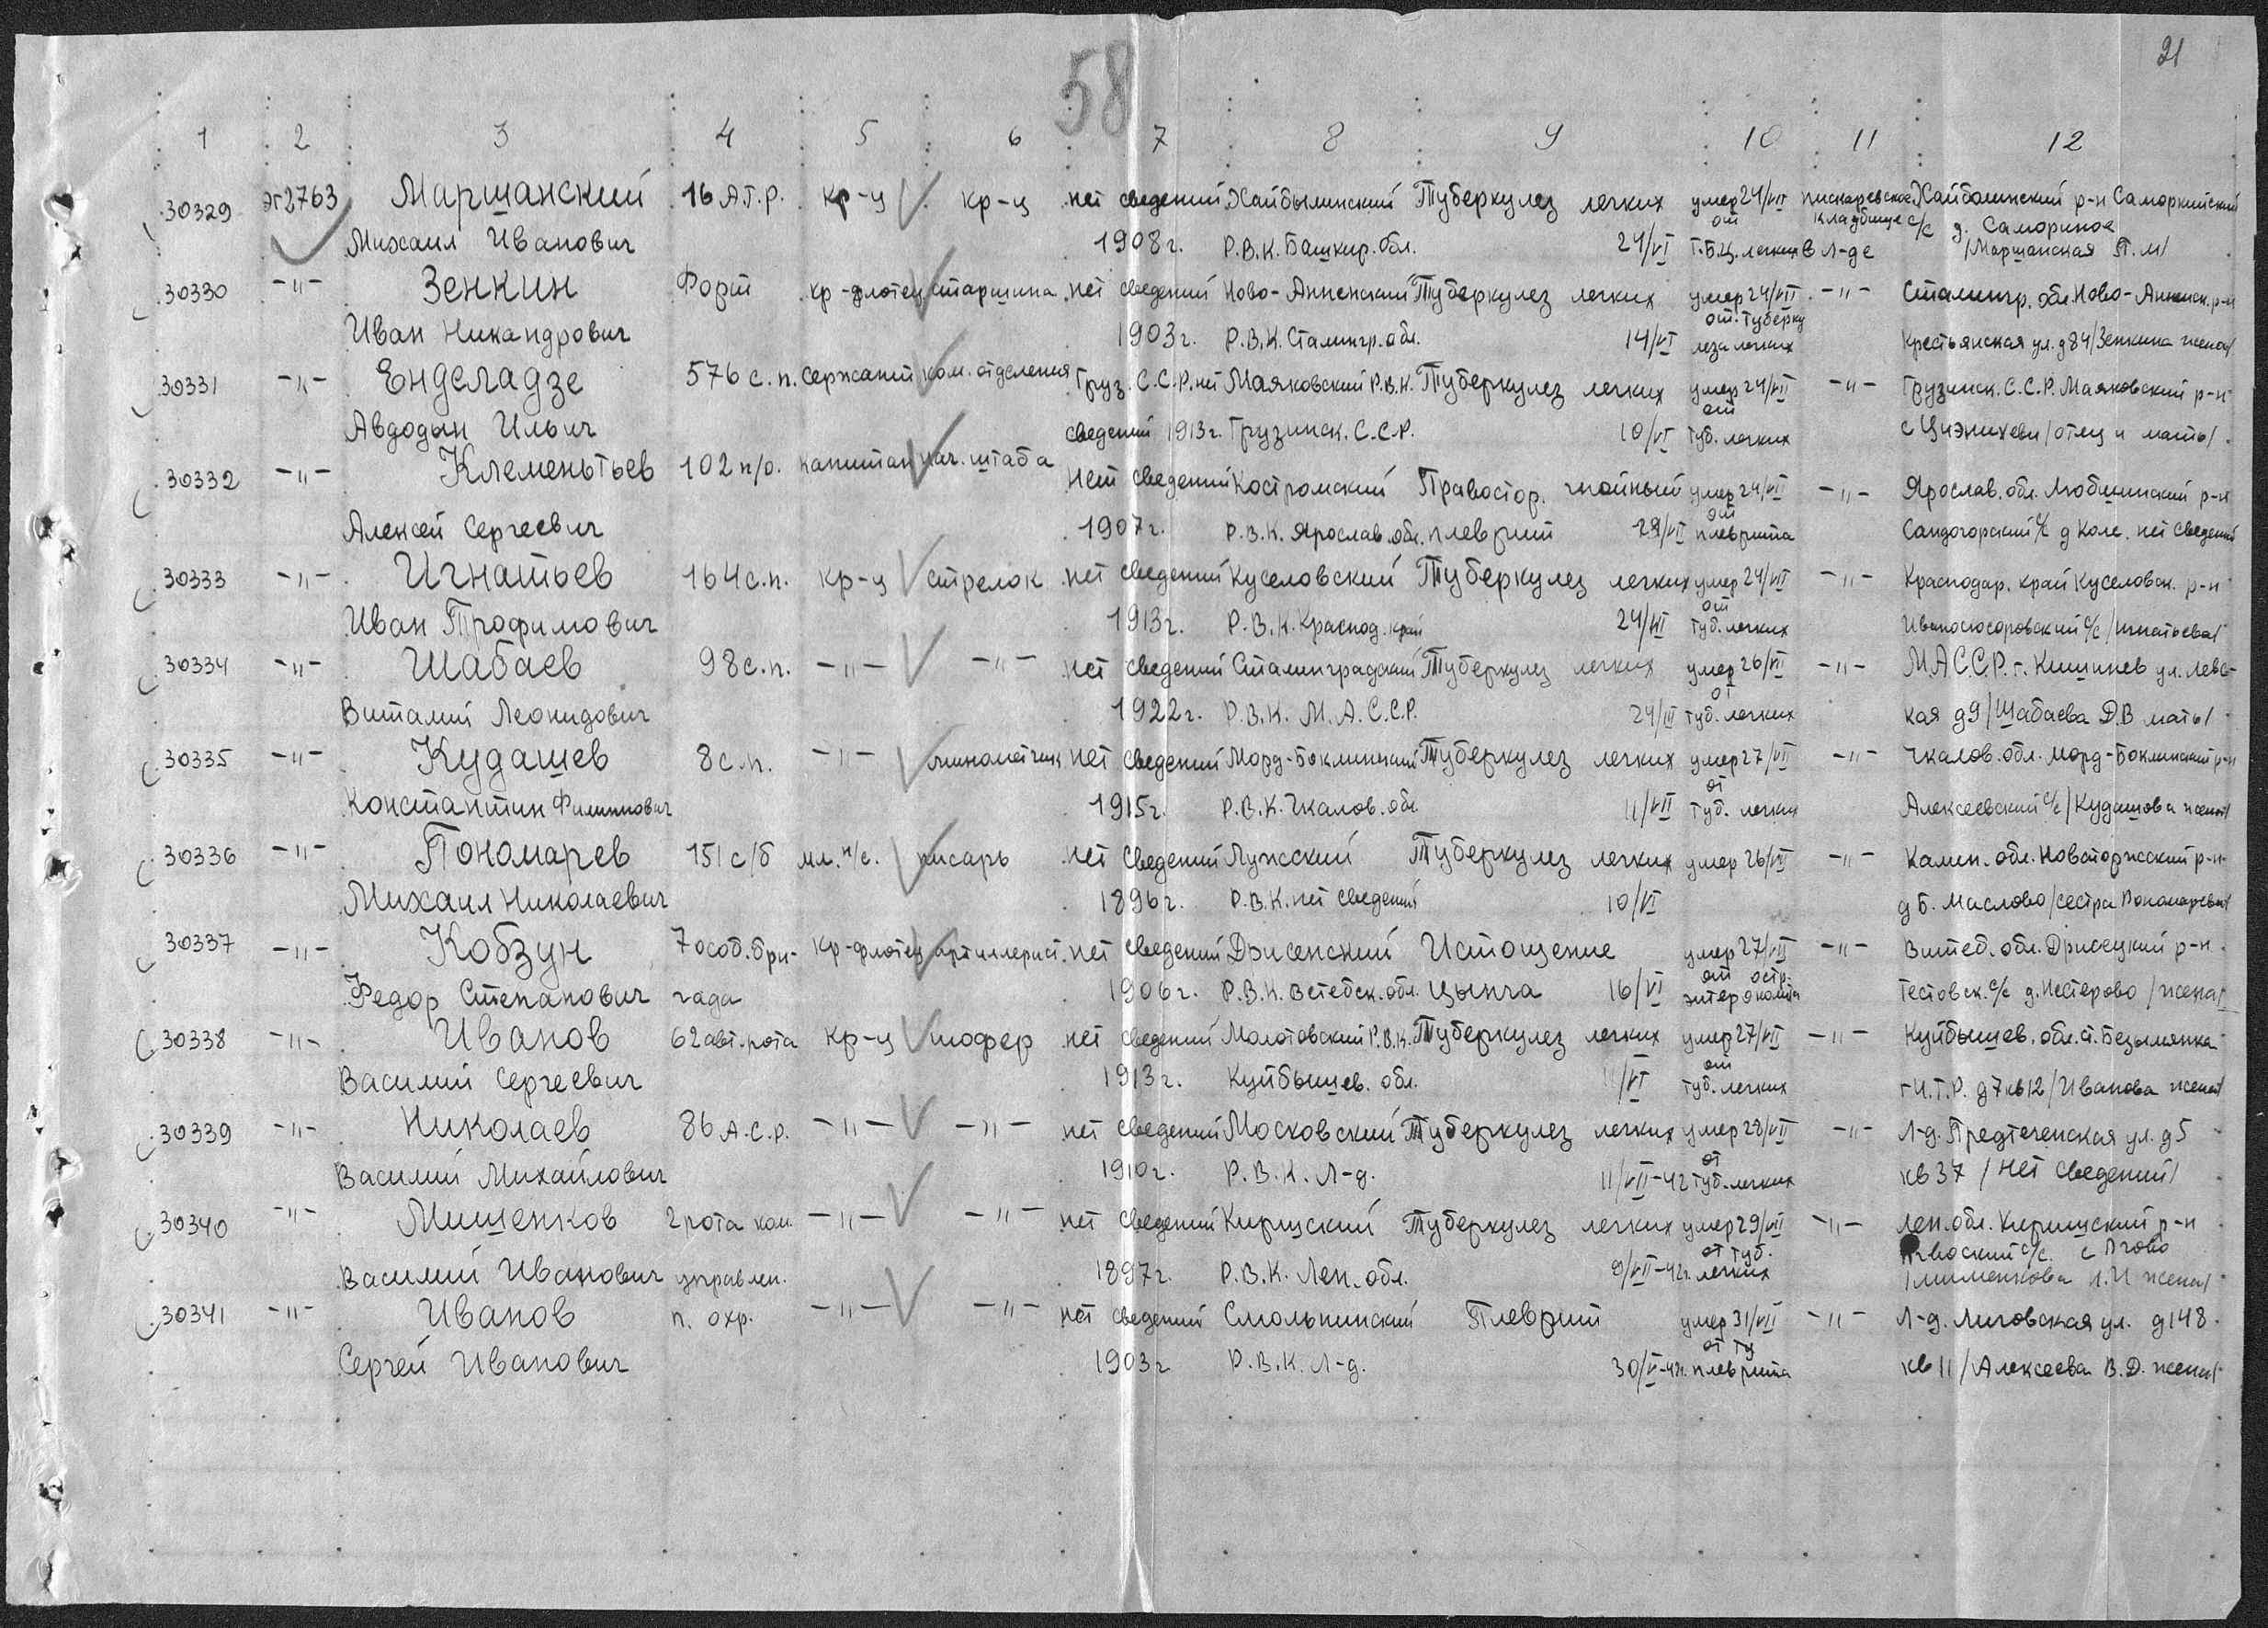 58
21
1 2 3 4 5 6 7 8 9 10 11 12
30329 эг2763 Маршанский 16 А.Т.Р. кр-ц кр-ц нет сведений Хайбылинский Туберкулез легких умер 24/VII пискаревское Хайболинский р-н Саморкийский
от кладбище с/с д. Самориное
Михаил Иванович 1908г. Р.В.К. Башкир. обл. 24/VI Т.Б.Ц. легких в Л-де /Маршанская П.М/
30330 -"- Зенкин Форт кр-флотец старшина нет сведений Ново-Анненский Туберкулез легких умер 24/VII -"- Сталингр. обл. Ново-Аннинск. р-н
от туберку
Иван Никандрович 1903г. Р.В.К. Сталингр. обл. 14/VI леза легких Крестьянская ул. д 84 /Зенкина жена/
30331 -"- Енделадзе 576 с.п. сержант ком. отделения Груз. С.С.Р. нет Маяковский Р.В.К. Туберкулез легких умер 24/VII -"- Грузинск. С.С.Р. Маяковский р-н
от
Авдодын Ильич сведений 1913г. Грузинск. С.С.Р. 10/VI туб. легких с /отец и мать/.
30332 -"- Клеменьтьев 102 п/о. капитан нач. штаба нет сведений Костромский Правостор. гнойный умер 24/VII -"- Ярослав. обл. Любшинский р-н
от
Алексей Сергеевич 1907г. Р.В.К. Ярослав. обл. плеврит /VII плеврита Сандогорский с/с д Коле. нет сведений
30333 -"- Игнатьев 164 с.п. кр-ц стрелок нет сведений Куселовский Туберкулез легких умер 24/VII -"- Краснодар. край Куселовск. р-н
от
Иван Трофимович 1913г. Р.В.К. Краснод. край 24/VII туб. легких с/с /Игнатьева/
30334 -"- Шабаев 98 с.п. -"- -"- нет сведений Сталинградский Туберкулез легких умер 26/VII -"- М.А.С.С.Р. г. Кишинев ул. Левс-
от
Виталий Леонидович 1922г. Р.В.К. М.А.С.С.Р. 24/III туб. легких кая д9 /Шабаева Д.В мать/
30335 -"- Кудашев 8 с.п. -"- минометчик нет сведений Морд-Боклинский Туберкулез легких умер 27/VII -"- Чкалов. обл. Морд-Боклинский р-н
от
Константин Филиппович 1915г. Р.В.К. Чкалов. обл 11/VII туб. легких Алексеевский с/с /Кудашова жена/
30336 -"- Пономарев 151 с/б мл. н/с. писарь нет сведений Лужский Туберкулез легких умер 26/VII -"- Калин. обл. Новоторжский р-н-
Михаил Николаевич 1896г. Р.В.К. нет сведений 10/VI д Б. Маслово /сестра Пономарева/
30337 -"- Кобзун 7 особ. бри- кр-флотец артиллерист. нет сведений Дрисенский Истощение умер 27/VII -"- Витеб. обл. Дрисецкий р-н.
от остр.
Федор Степанович гада 1906г. Р.В.К. Встебск. обл. Цынга 16/VI энтероколита Тестовск. с/с д. Нестерово /жена/
30338 -"- Иванов 62 авт. рота кр-ц шофер нет сведений Молотовский Р.В.К. Туберкулез легких умер 27/VII -"- Куйбышев. обл. ст. Безымянка
от
Василий Сергеевич 1913г. Куйбышев. обл. 11/VI туб. легких г И.Т.Р. д 7 кв 12 /Иванова жена/
30339 -"- Николаев 86 А.С.Р. -"- -"- нет сведений Московский Туберкулез легких умер 28/VII -"- Л-д. Предтеченская ул. д 5
от
Василий Михайлович 1910г. Р.В.К. Л-д. 11/VII-42 туб. легких кв 37 /нет сведений/
30340 -"- Мишенков 2 рота ком. -"- -"- нет сведений Киришский Туберкулез легких умер 29/VII -"- Лен. обл. Киришский р-н
от туб. с/с. с Пчево
Василий Иванович управлен. 1897г. Р.В.К. Лен. обл. 9/VII-42г. легких /Мишенкова А.И жена/
30341 -"- Иванов п. охр. -"- -"- нет сведений Смольнинский Плеврит умер 31/VII -"- Л-д. Лиговская ул. д 148.
от ту
Сергей Иванович 1903г Р.В.К. Л-д. 30/V-42г. плеврита кв 11 /Алексеева В.Д. жена/